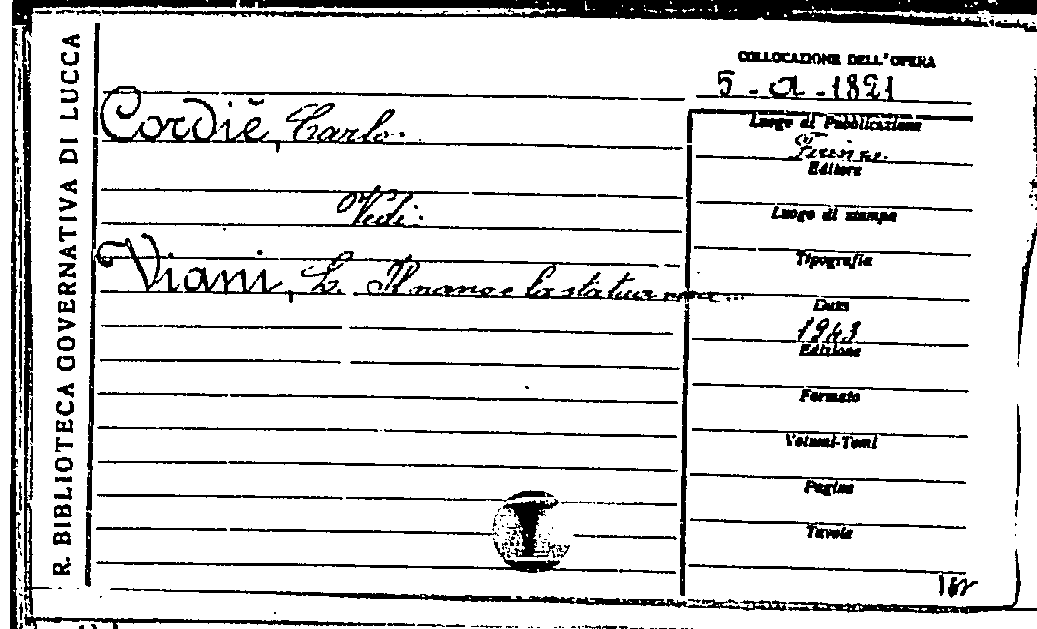 R. BIBLIOTECA GOVERNATIVA DI LUCCA
Cordiè, Carlo.
Vedi:
Viani, L. Il nano e la statua nera...
COLLOCAZIONE DELL'OPERA
5 - A - 1821
Luogo di Pubblicazione
Editore
Luogo di stampa
Tipografia
Data
1943
Edizione
Formato
Volumi-Tomi
Pagine
Tavole